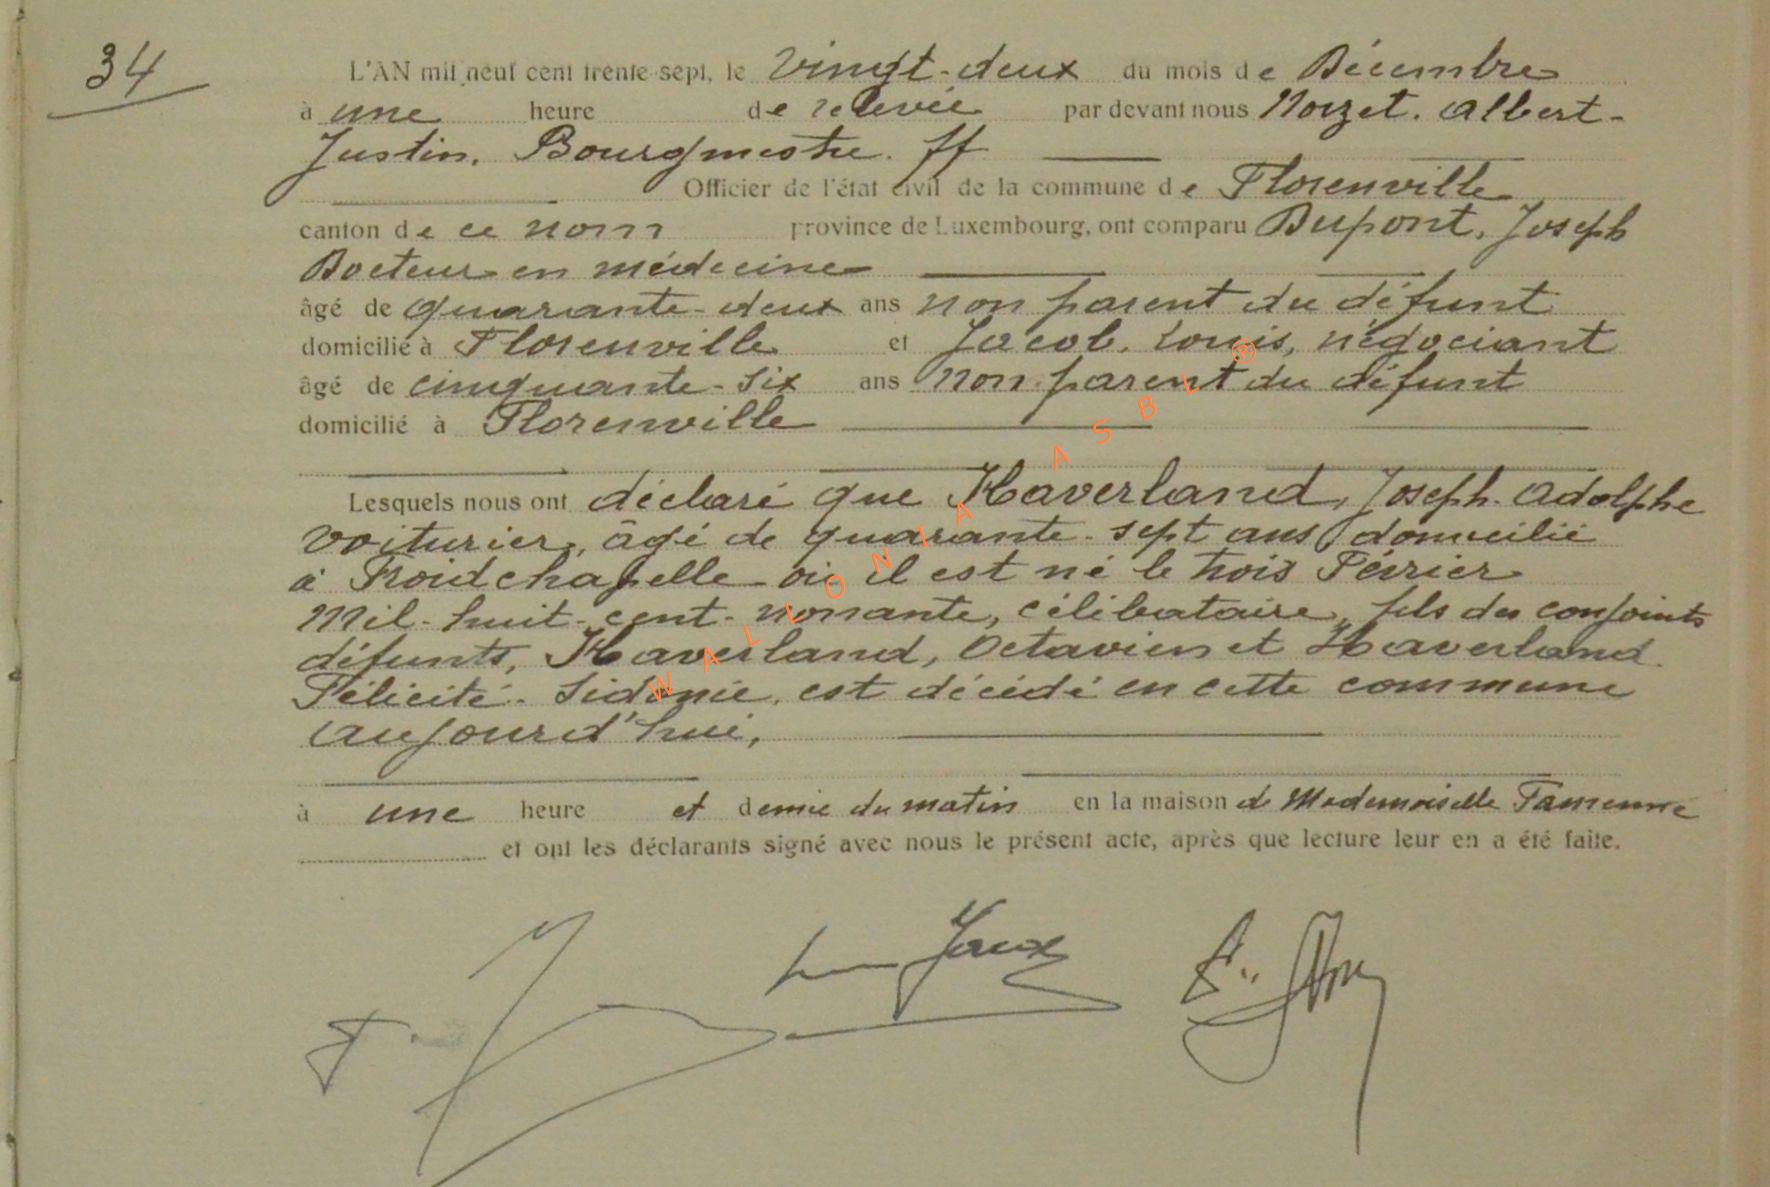 34
L'AN mil neuf cent trente-sept, le Vingt-deux du mois de Décembre
à une heure de relevée par devant nous Noizet. Albert-
Justin. Bourgmestre. ff
Officier de l'état civil de la commune de Florenville
canton de ce nom province de Luxembourg, ont comparu Dupont, Joseph
Docteur en médecine
âgé de quarante-deux ans non parent du défunt
domicilié à Florenville et Jacob, Louis, négociant
âgé de cinquante-six ans non parent du défunt
domicilié à Florenville
Lesquels nous ont déclaré que Haverland, Joseph-Adolphe
voiturier, âgé de quarante-sept ans domicilié
à Froidchapelle où il est né le trois Février
Mil-huit-cent-nonante, célibataire, fils des conjoints
défunts, Haverland, Octavien et Haverland
Félicité-Sidonie, est décédé en cette commune
aujourd'hui,
à une heure et demie du matin en la maison de Mademoiselle Famenne
et ont les déclarants signé avec nous le présent acte, après que lecture leur en a été faite.
WALLONIA ASBL ®